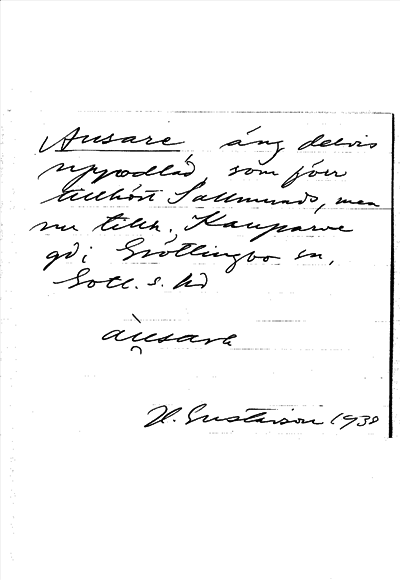 Ausare äng delvis
uppodlad, som förr
tillhört Sallmunds, men
nu tillh. Kauparve
gd i Grötlingbo sn,
Gotl. s. hd
àu̯sarɐ
H. Gustavson 1938